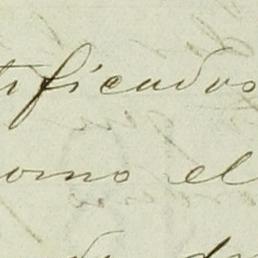 tificados
omo el